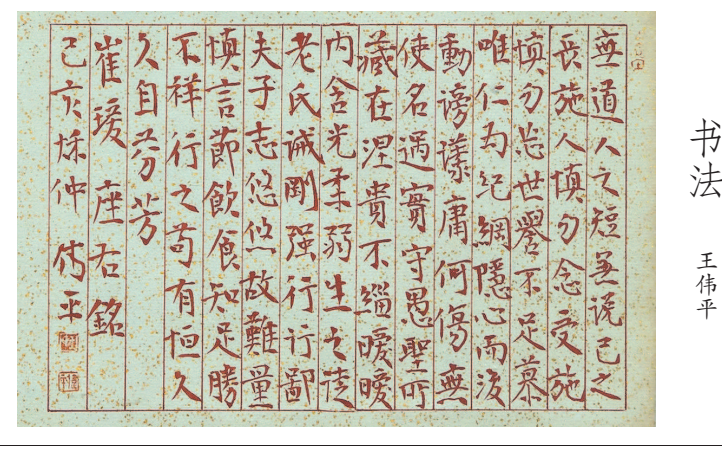 無道人之短無说己之
長施人慎勿念受施
慎勿忘世譽不足慕
唯仁为紀綱隱心而後
動謗議庸何傷無
使名過實守愚聖所
藏在涅貴不緇曖曖
内含光柔弱生之徒
老氏诫剛强行行鄙
夫子志悠悠故難量
慎言節飲食知足勝
不祥行之苟有恒久
久自芬芳
崔瑗座右銘
己亥秌仲伟平
书法
王伟平